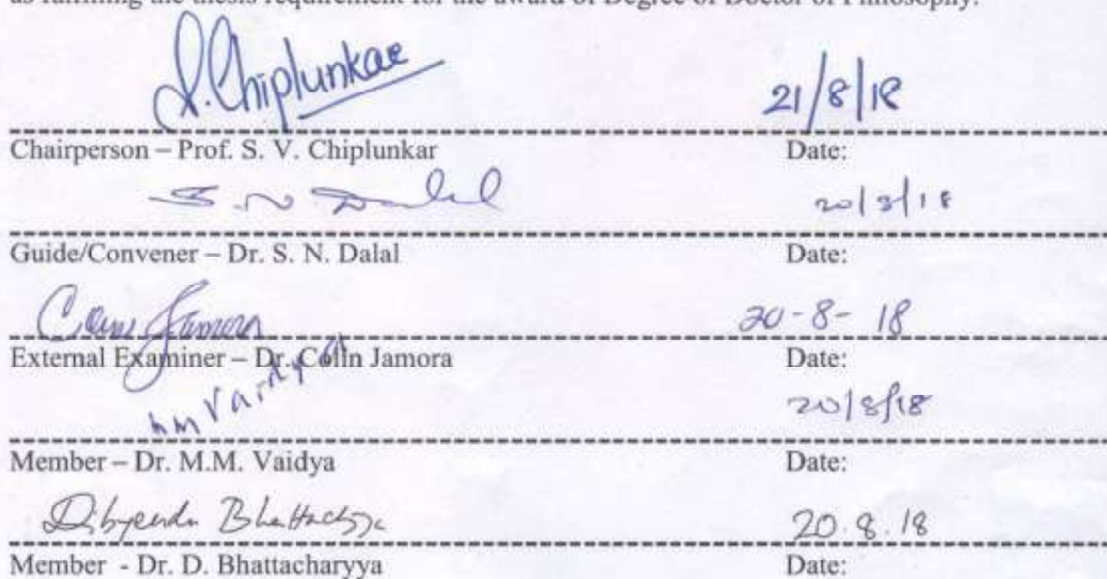 as fulfilling the thesis requirement for the award of Degree of Doctor of Philosophy.
S.Chiplunkar 21/8/18
Chairperson – Prof. S. V. Chiplunkar Date:
S. N Dalal 20/8/18
Guide/Convener – Dr. S. N. Dalal Date:
Colin Jamora 20-8-18
External Examiner – Dr. Colin Jamora Date:
mm Vaidya 20/8/18
Member – Dr. M.M. Vaidya Date:
Dibyendu Bhattacharyya 20.8.18
Member - Dr. D. Bhattacharyya Date: